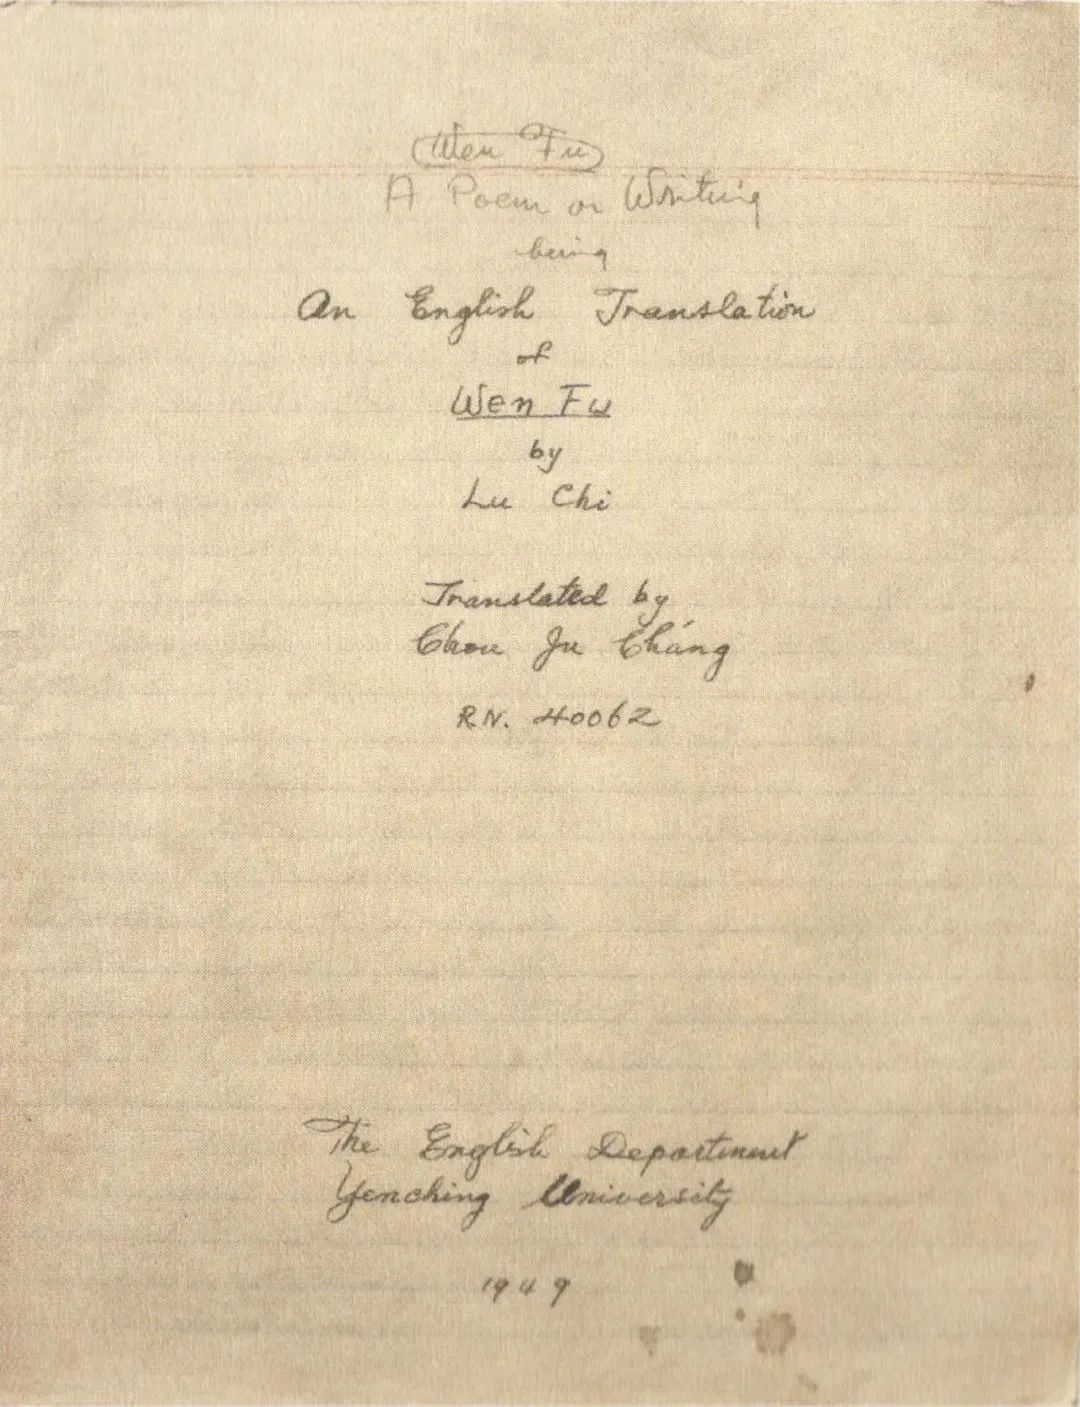 Wen Fu
A Poem on Writing
being
An English Translation
of
Wen Fu
by
Lu Chi
Translated by
Chou Ju Cháng
R.N. 40062
The English Department
Yenching University
1949